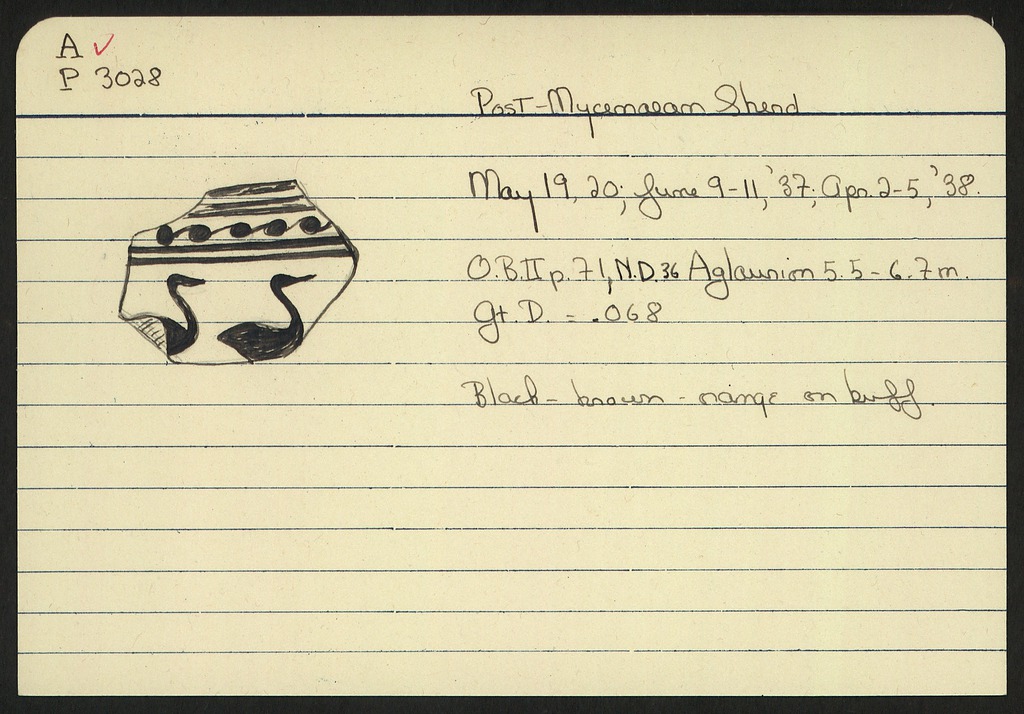 A ✓
P 3028
Post-Mycenaean Sherd
May 19, 20; June 9-11, '37; Apr. 2-5, '38.
O.B.II p. 71, N.D. 36 Aglaurion 5.5 - 6.7 m.
Gt. D. = .068
Black - brown - orange on buff.